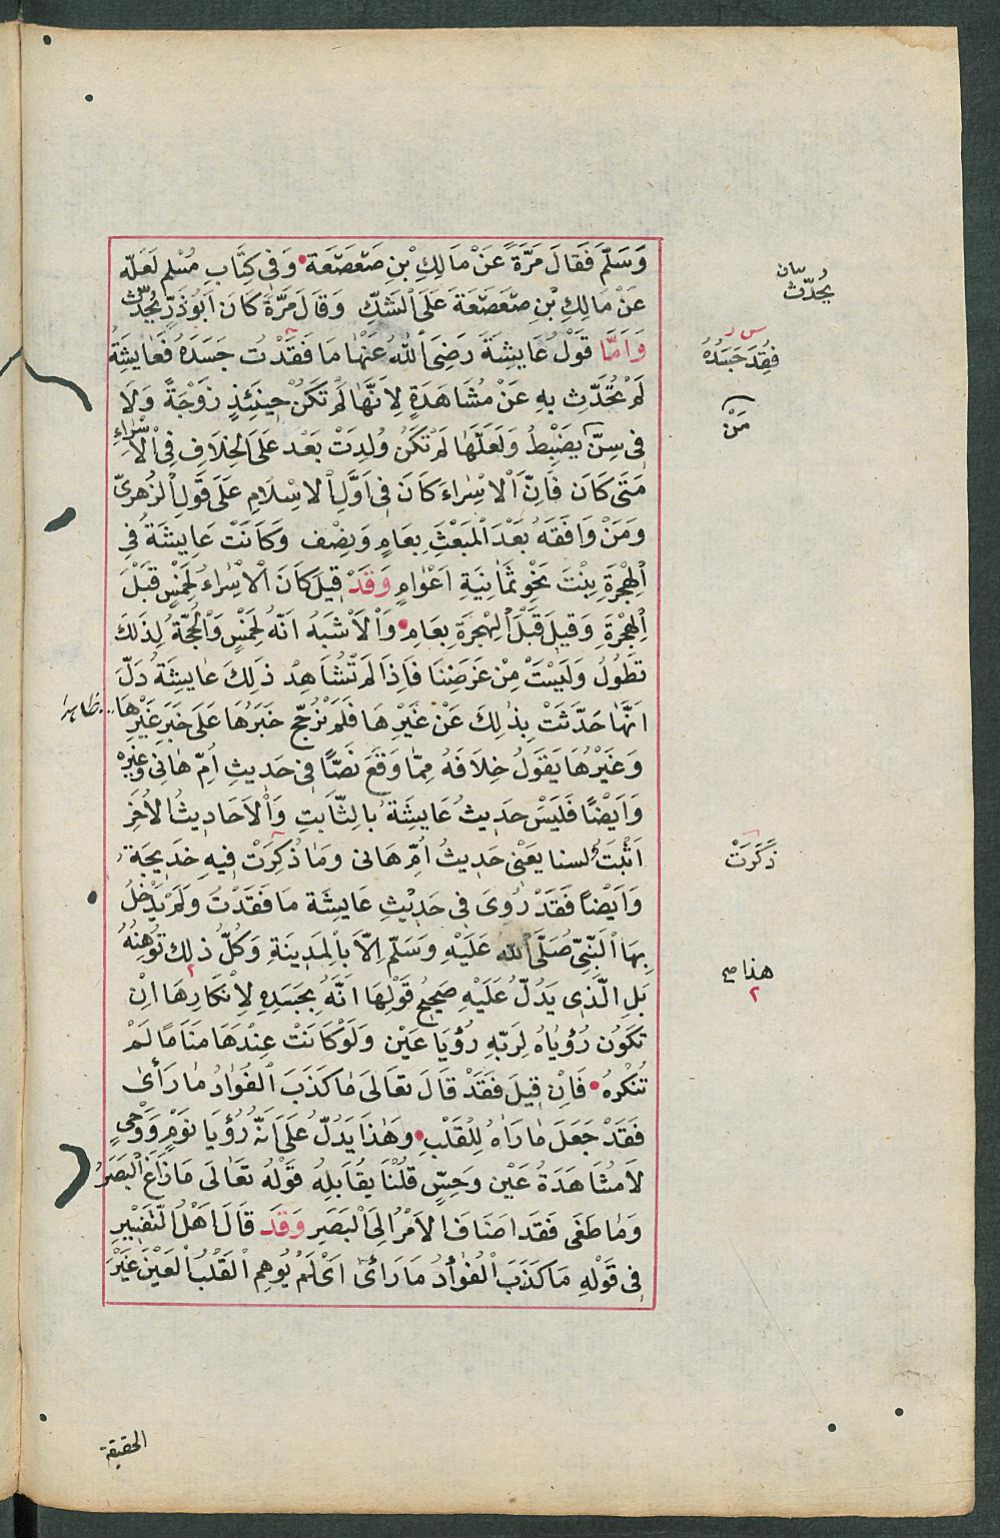 وَسَلَّمَ فَقَالَ مَرَّةً عَنْ مَالِكِ بْنِ صَعْصَعَةَ وَفِي كِتَابِ مُسْلِمٍ لَعَلَّهُ
عَنْ مَالِكِ بْنِ صَعْصَعَةَ عَلَى الشَّكِّ وَقَالَ مَرَّةً كَانَ اَبُو ذَرٍّ يُحَدِّثُ
وَاَمَّا قَوْلُ عَايِشَةَ رَضِيَ اللهُ عَنْهَا مَا فَقَدْتُ جَسَدَهُ فَعَايِشَةُ
لَمْ تُحَدِّثْ بِهِ عَنْ مُشَاهَدَةٍ لِاَنَّهَا لَمْ تَكُنْ حِينَئِذٍ زَوْجَةً وَلَا
فِي سِنِّ يَضْبِطُ وَلَعَلَّهَا لَمْ تَكُنْ وُلِدَتْ بَعْدُ عَلَى الْخِلَافِ فِي الْاِسْرَاءِ
مَتَى كَانَ فَاِنَّ الْاِسْرَاءَ كَانَ فِي اَوَّلِ الْاِسْلَامِ عَلَى قَوْلِ الزُّهْرِيِّ
وَمَنْ وَافَقَهُ بَعْدَ الْمَبْعَثِ بِعَامٍ وَنِصْفٍ وَكَانَتْ عَايِشَةُ فِي
الْهِجْرَةِ بِنْتَ نَحْوِ ثَمَانِيَةِ اَعْوَامٍ وَقَدْ قِيلَ كَانَ الْاِسْرَاءُ لِخَمْسٍ قَبْلَ
الْهِجْرَةِ وَقِيلَ قَبْلَ الْهِجْرَةِ بِعَامٍ وَالْاَشْبَهُ اَنَّهُ لِخَمْسٍ وَالْحُجَّةُ لِذَلِكَ
تَطُولُ وَلَيْسَتْ مِنْ غَرَضِنَا فَاِذَا لَمْ تُشَاهِدْ ذَلِكَ عَايِشَةُ دَلَّ
اَنَّهَا حَدَّثَتْ بِذَلِكَ عَنْ غَيْرِهَا فَلَمْ يُرَجَّحْ خَبَرُهَا عَلَى خَبَرِ غَيْرِهَا
وَغَيْرُهَا يَقُولُ خِلَافَهُ مِمَّا وَقَعَ نَصًّا فِي حَدِيثِ اُمِّ هَانِي وَغَيْرِهِ
وَاَيْضًا فَلَيْسَ حَدِيثُ عَايِشَةَ بِالثَّابِتِ وَالْاَحَادِيثُ الْاُخَرُ
اَثْبَتُ لسنا يَعْنِي حَدِيثُ اُمِّ هَانِي وَمَا ذُكِرَتْ فِيهِ خَدِيجَةُ
وَاَيْضًا فَقَدْ رُوِيَ فِي حَدِيثِ عَايِشَةَ مَا فَقَدْتُ وَلَمْ يَدْخُلْ
بِهَا النَّبِيُّ صَلَّى اللهُ عَلَيْهِ وَسَلَّمَ اِلَّا بِالْمَدِينَةِ وَكُلُّ ذلِكَ تُوهِنُهُ
بَلِ الَّذِي يَدُلُّ عَلَيْهِ صَحِيحُ قَوْلِهَا اَنَّهُ بِجَسَدِهِ لِاِنْكَارِهَا اَنْ
تَكُونَ رُؤْيَاهُ لِرَبِّهِ رُؤْيَا عَيْنٍ وَلَوْ كَانَتْ عِنْدَهَا مَنَامًا لَمْ
تُنْكِرْهُ فَاِنْ قِيلَ فَقَدْ قَالَ تَعَالَى مَا كَذَبَ الْفُؤَادُ مَا رَأَى
فَقَدْ جَعَلَ مَا رَاٰهُ لِلْقَلْبِ وَهَذَا يَدُلُّ عَلَى اَنَّهُ رُؤْيَا نَوْمٍ وَوَحْيٍ
لَا مُشَاهَدَةُ عَيْنٍ وَحِسٍّ قُلْنَا يُقَابِلُهُ قَوْلُهُ تَعَالَى مَا زَاغَ الْبَصَرُ
وَمَا طَغَى فَقَدْ اَضَافَ الْاَمْرَ اِلَى الْبَصَرِ وَقَدْ قَالَ اَهْلُ التَّفْسِيرِ
فِي قَوْلِهِ مَا كَذَبَ الْفُؤَادُ مَا رَأَى اَيْ لَمْ يُوهِمِ الْقَلْبُ الْعَيْنَ غَيْرَ
الحقيقة
يُحَدِّثُ
فُقِدَ جَسَدُهُ
مَنْ
ذَكَرَتْ
هذا صح